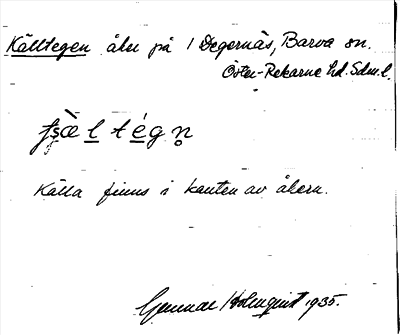 Källtegen åker på 1 Degernäs, Barva sn.
Öster-Rekarne hd. Sdm.l.
Källa finns i kanten av åkern.
Gunnar Holmqvist 1935.